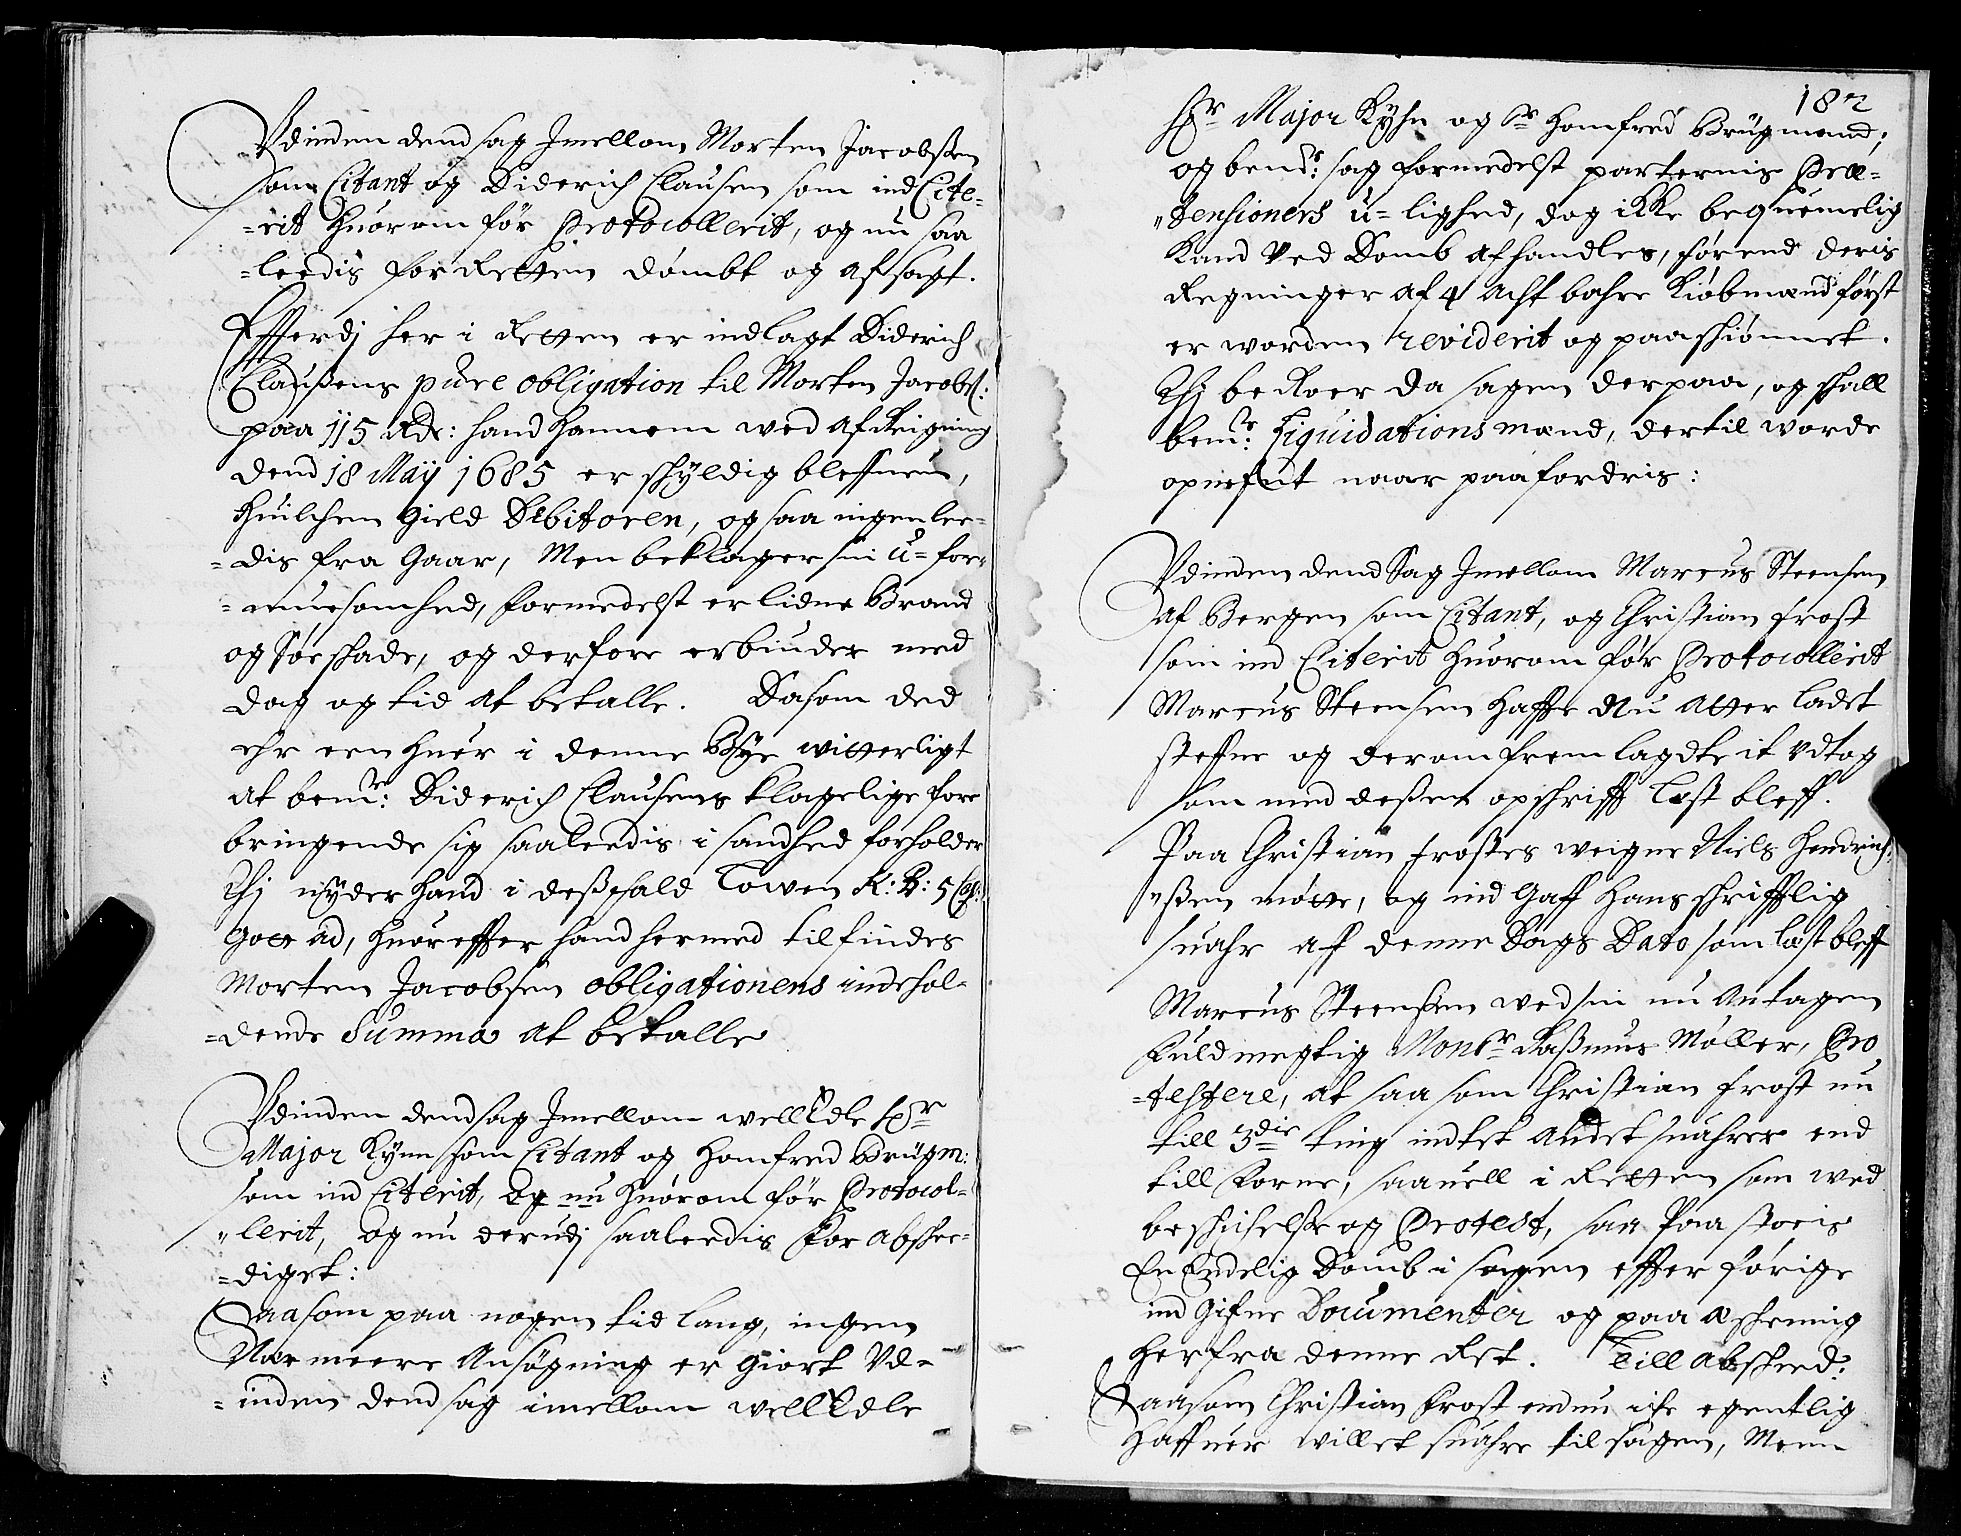 Udinden dend sag Imellom Morten Jacobssen
som Citant og Diderich Clausen som ind Cite-
-rit huorom før Protocollerit, og nu saa
-leedis for Retten dømbt og afsagt.
Effterdj her i Retten er indlagt Diderich
Claussens pure obligation til Morten Jacobs:
paa 115 Rdr: hand hannem wed afReigning
dend 18 Maÿ 1685 er schyldig bleffuen,
huilchen gield Debitoren, og saa ingenlee-
-dis fra gaar, Men beklager sin u=for-
-muesomhed, formedelst erlidne Brand
og Søe schade, og derfore erbiuder med
dag og tid at betalle. Dasom ded
ehr een huer i denne Bÿe witterligt
at bemte: Diderich Clausens klagelige fore
bringende sig saaleedis i sandhed forholder
Thj nÿder hand i desse fald Lowen K: B: 5 Cap:
got ad, huoreffter hand hermed tilfindes
Morten Jacobsen obligationens indehol-
-dende Summa at betalle
Udinden dend sag Imellom wellEdle Hr
Major Kÿhn som Citant og Homfred Brügm:
som ind Citerit, og nu huorom før Protocol-
-lerit, og nu derudj saaleedis for afschee-
-diget:
Saasom paa nogen tid lang, ingen
Nærmeere Ansøgning er giort Ud-
-inden dend sag imellom wellEdle
182
Hr Major Kÿhn og Sr Homfred Brügmand;
og bemte: sag formedelst parternis Præ-
-tensioners u=lighed, dog ikke beqvemelig
kand ved Domb afhandles, førend deris
Regninger af 4 acht bahre Kiøbmænd først
er worden reviderit og paaschiønnet.
Thj beRoer da sagen derpaa, og schall
bemte: Liquidations mænd, dertil worde
opnefnt naar paafordris:
Udinden dend Sag Imellom Marcus Steensen
af Bergen som Citant, og Christian Frost
som ind Citerit huorom før Protocollerit
Marcus Steensen haffr nu atter ladet
steffne og derom fremlagdte it udtog
som med dessen opschrifft læst bleff.
Paa Christian Frostes weigne Niels Hendrich:
-ssen møtte, og ind gaff hans schrifftlig
suahr aff denne Dags Dato som læst bleff
Marcus Steenssen wed sin nu Antagen
Fuldmegtig Monsr Rassmus Møller, Pro
-testere, at saa som Christian Frost nu
till 3die ting indtet andet suahrer end
till forne, saauell i Retten som wed
beschichelse og Protest, saa Paa stoeis
En Endelig Domb i sagen effter førige
ind gifne Documenter og paa æschening
herfra denne Ret. Till Abscheed:
Saasom Christian Frost endnu iche egentlig
haffuer willet suahre til sagen, Menn